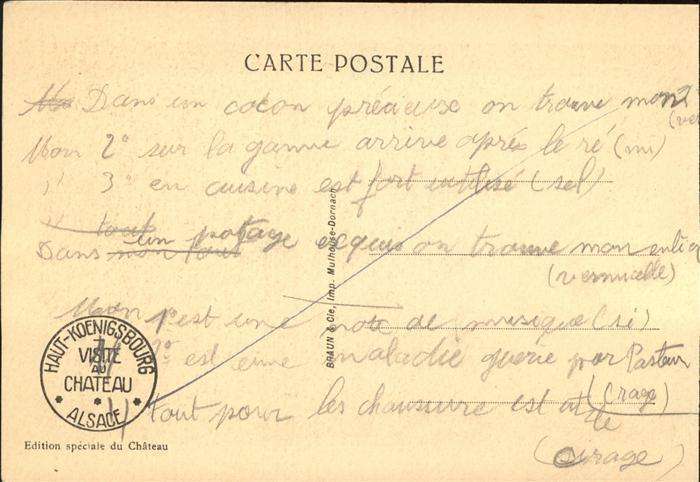 CARTE POSTALE
Dans un cocon précieuse on trouve mon 1
(ver
Mon 2º sur la gamme arrive après le ré (mi)
" 3º en cuisine est fort utilisé (sel)
" tout
Dans mon tout un potage exquis on trouve mon entier
(vermicelle)
Mon 1º est une note de musique (si)
" 2º est une maladie guérie par Pasteur
(rage)
" tout pour les chaussure est utile
(cirage)
BRAUN & Cie, Imp. Mulhouse-Dornach
HAUT-KOENIGSBOURG
VISITE
AU
CHATEAU
* * *
ALSACE
Edition spéciale du Château